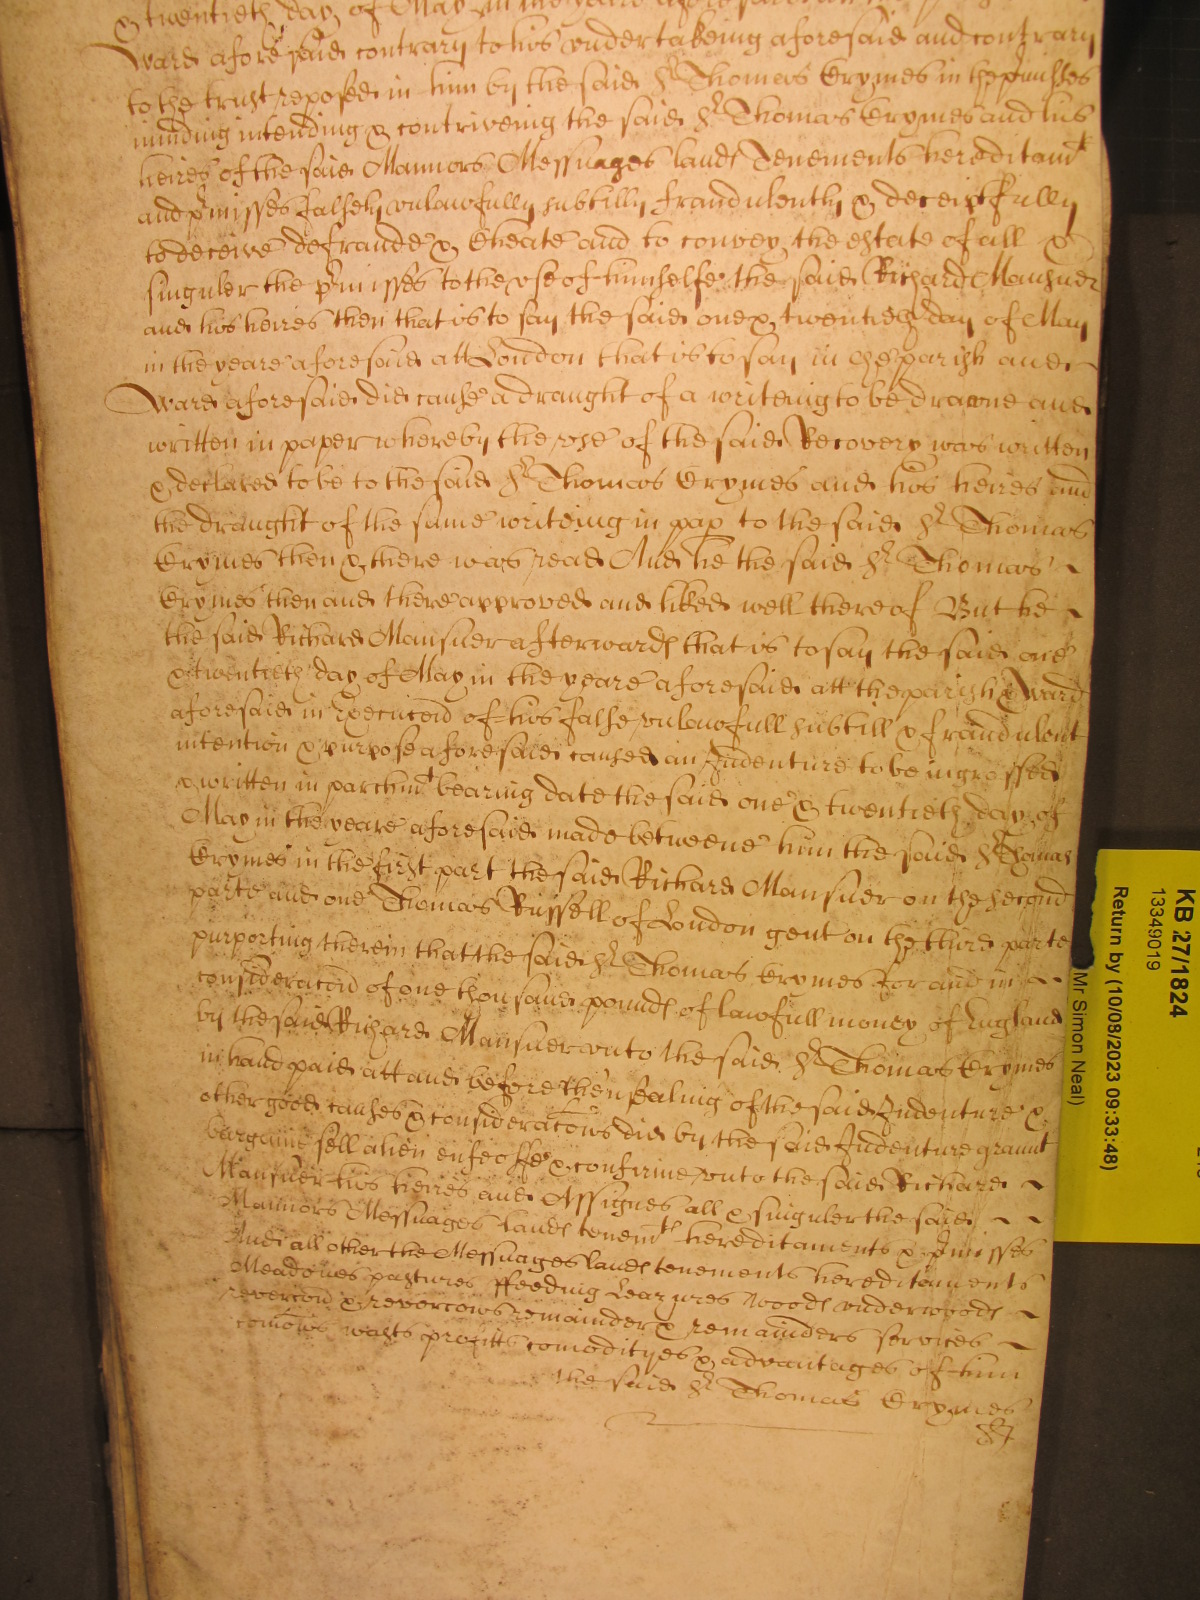 & twentieth day of May in the yeare aforesaid
Ward aforesaid contrary to his undertakeing aforesaid and contrary
to the trust reposed in him by the said Sr Thomas Crymes in the pmisses
minding intending & contriveing the said Sr Thomas Crymes and his
heires of the said Mannors Messuages lands Tenements hereditamts
and pmisses falsely unlawfully subtilly fraudulently & deceiptfully
to deceive defraude & Cheate and to convey the estate of all &
singuler the pmisses to the use of himselfe the said Richard Mansuer
and his heires then that is to say the said one & twentieth day of May
in the yeare aforesaid att London that is to say in the parish and
Ward aforesaid did cause a draught of a writeing to be drawne and
written in paper whereby the use of the said Recovery was written
& declared to be to the said Sr Thomas Crymes and his heires and
the draught of the same writeing in pap to the said Sr Thomas
Crymes then & there was read And he the said Sr Thomas
Crymes then and there approved and liked well thereof But he
the said Richard Mansuer afterwards that is to say the said one
& twentieth day of May in the yeare aforesaid att the parish & Ward
aforesaid in execucon of his false unlawfull subtill & fraudulent
intention & purpose aforesaid caused an Indenture to be ingrossed
& written in parchmt bearing date the said one & twentieth day of
May in the yeare aforesaid made betweene him the said Sr Thomas
Crymes in the first part the said Richard Mansuer on the second
parte and one Thomas Russell of London gent on the third parte
purporting therein that the said Sr Thomas Crymes for and in
consideracon of one thousand pounds of lawfull money of England
by the said Richard Mansuer unto the said Sr Thomas Crymes
in hand paid att and before then sealing of the said Indenture &
other good causes & consideracons did by the said Indenture graunt
bargaine sell alien enfeoffe & confirme unto the said Richard
Mansuer his heires and Assignes all & singuler the said
Mannors Messuages lands tenemts hereditaments & pmisses
And all other the Messuages lands tenements hereditaments
Meadowes pastures ffeeding Leazures woods underwoods
revercon & revercons remainder & remainders services
comons wasts profitts comodityes & advantages of him
the said Sr Thomas Crymes
Sr
KB 27/1824
13349019
Return by (10/08/2023 09:33:48)
Mr Simon Neal)